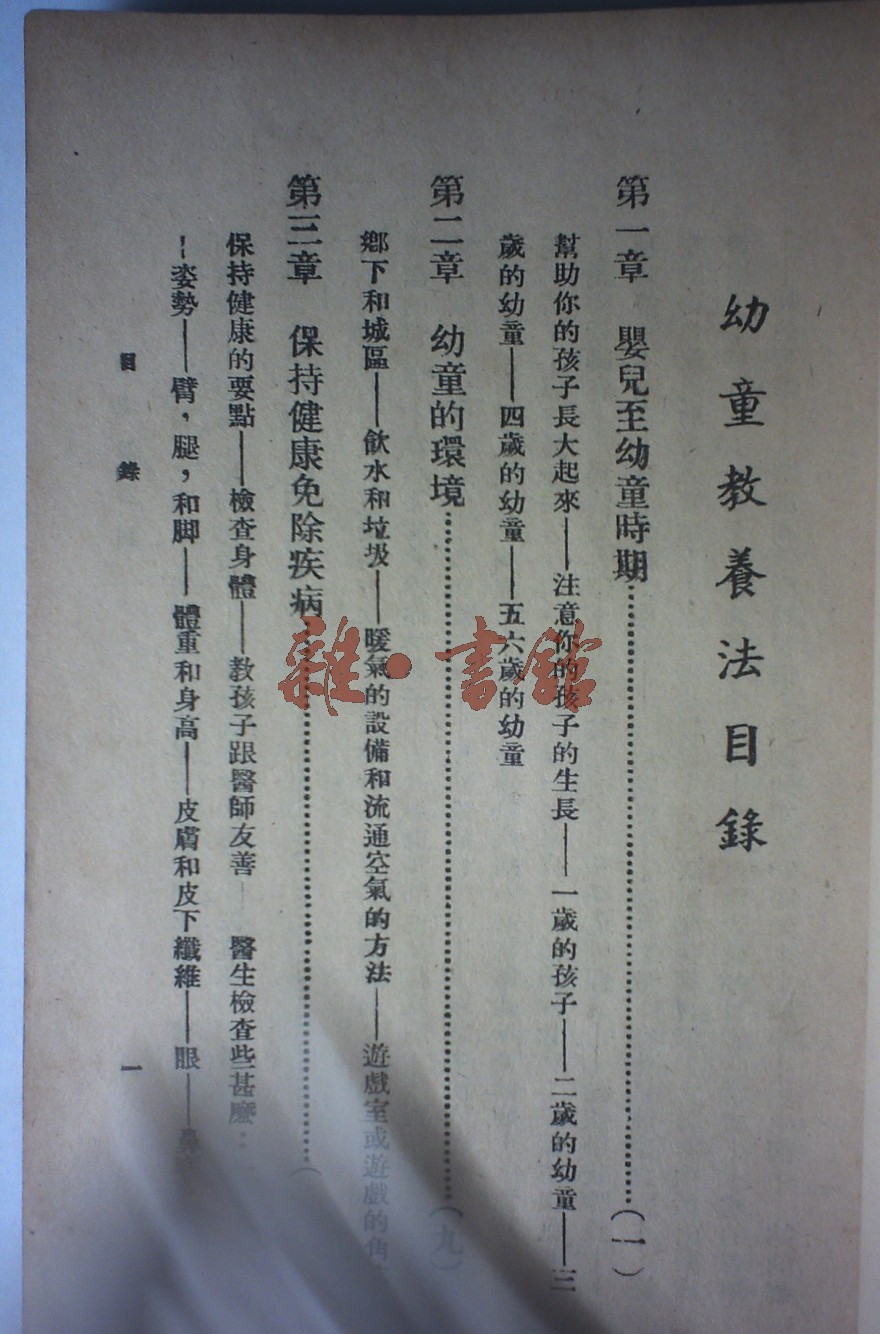 幼童教養法目錄
第一章　嬰兒至幼童時期……………………(一)
幫助你的孩子長大起來——注意你的孩子的生長——一歲的孩子——二歲的幼童——三
歲的幼童——四歲的幼童——五六歲的幼童
第二章　幼童的環境……………………(九)
鄉下和城區——飲水和垃圾——暖氣的設備和流通空氣的方法——遊戲室或遊戲的角
第三章　保持健康免除疾病……………………(
保持健康的要點——檢查身體——教孩子跟醫師友善　醫生檢查些甚麼：
姿勢——臂，腿，和脚——體重和身高——皮膚和皮下纖維——眼——鼻
目錄
一
雜·書館